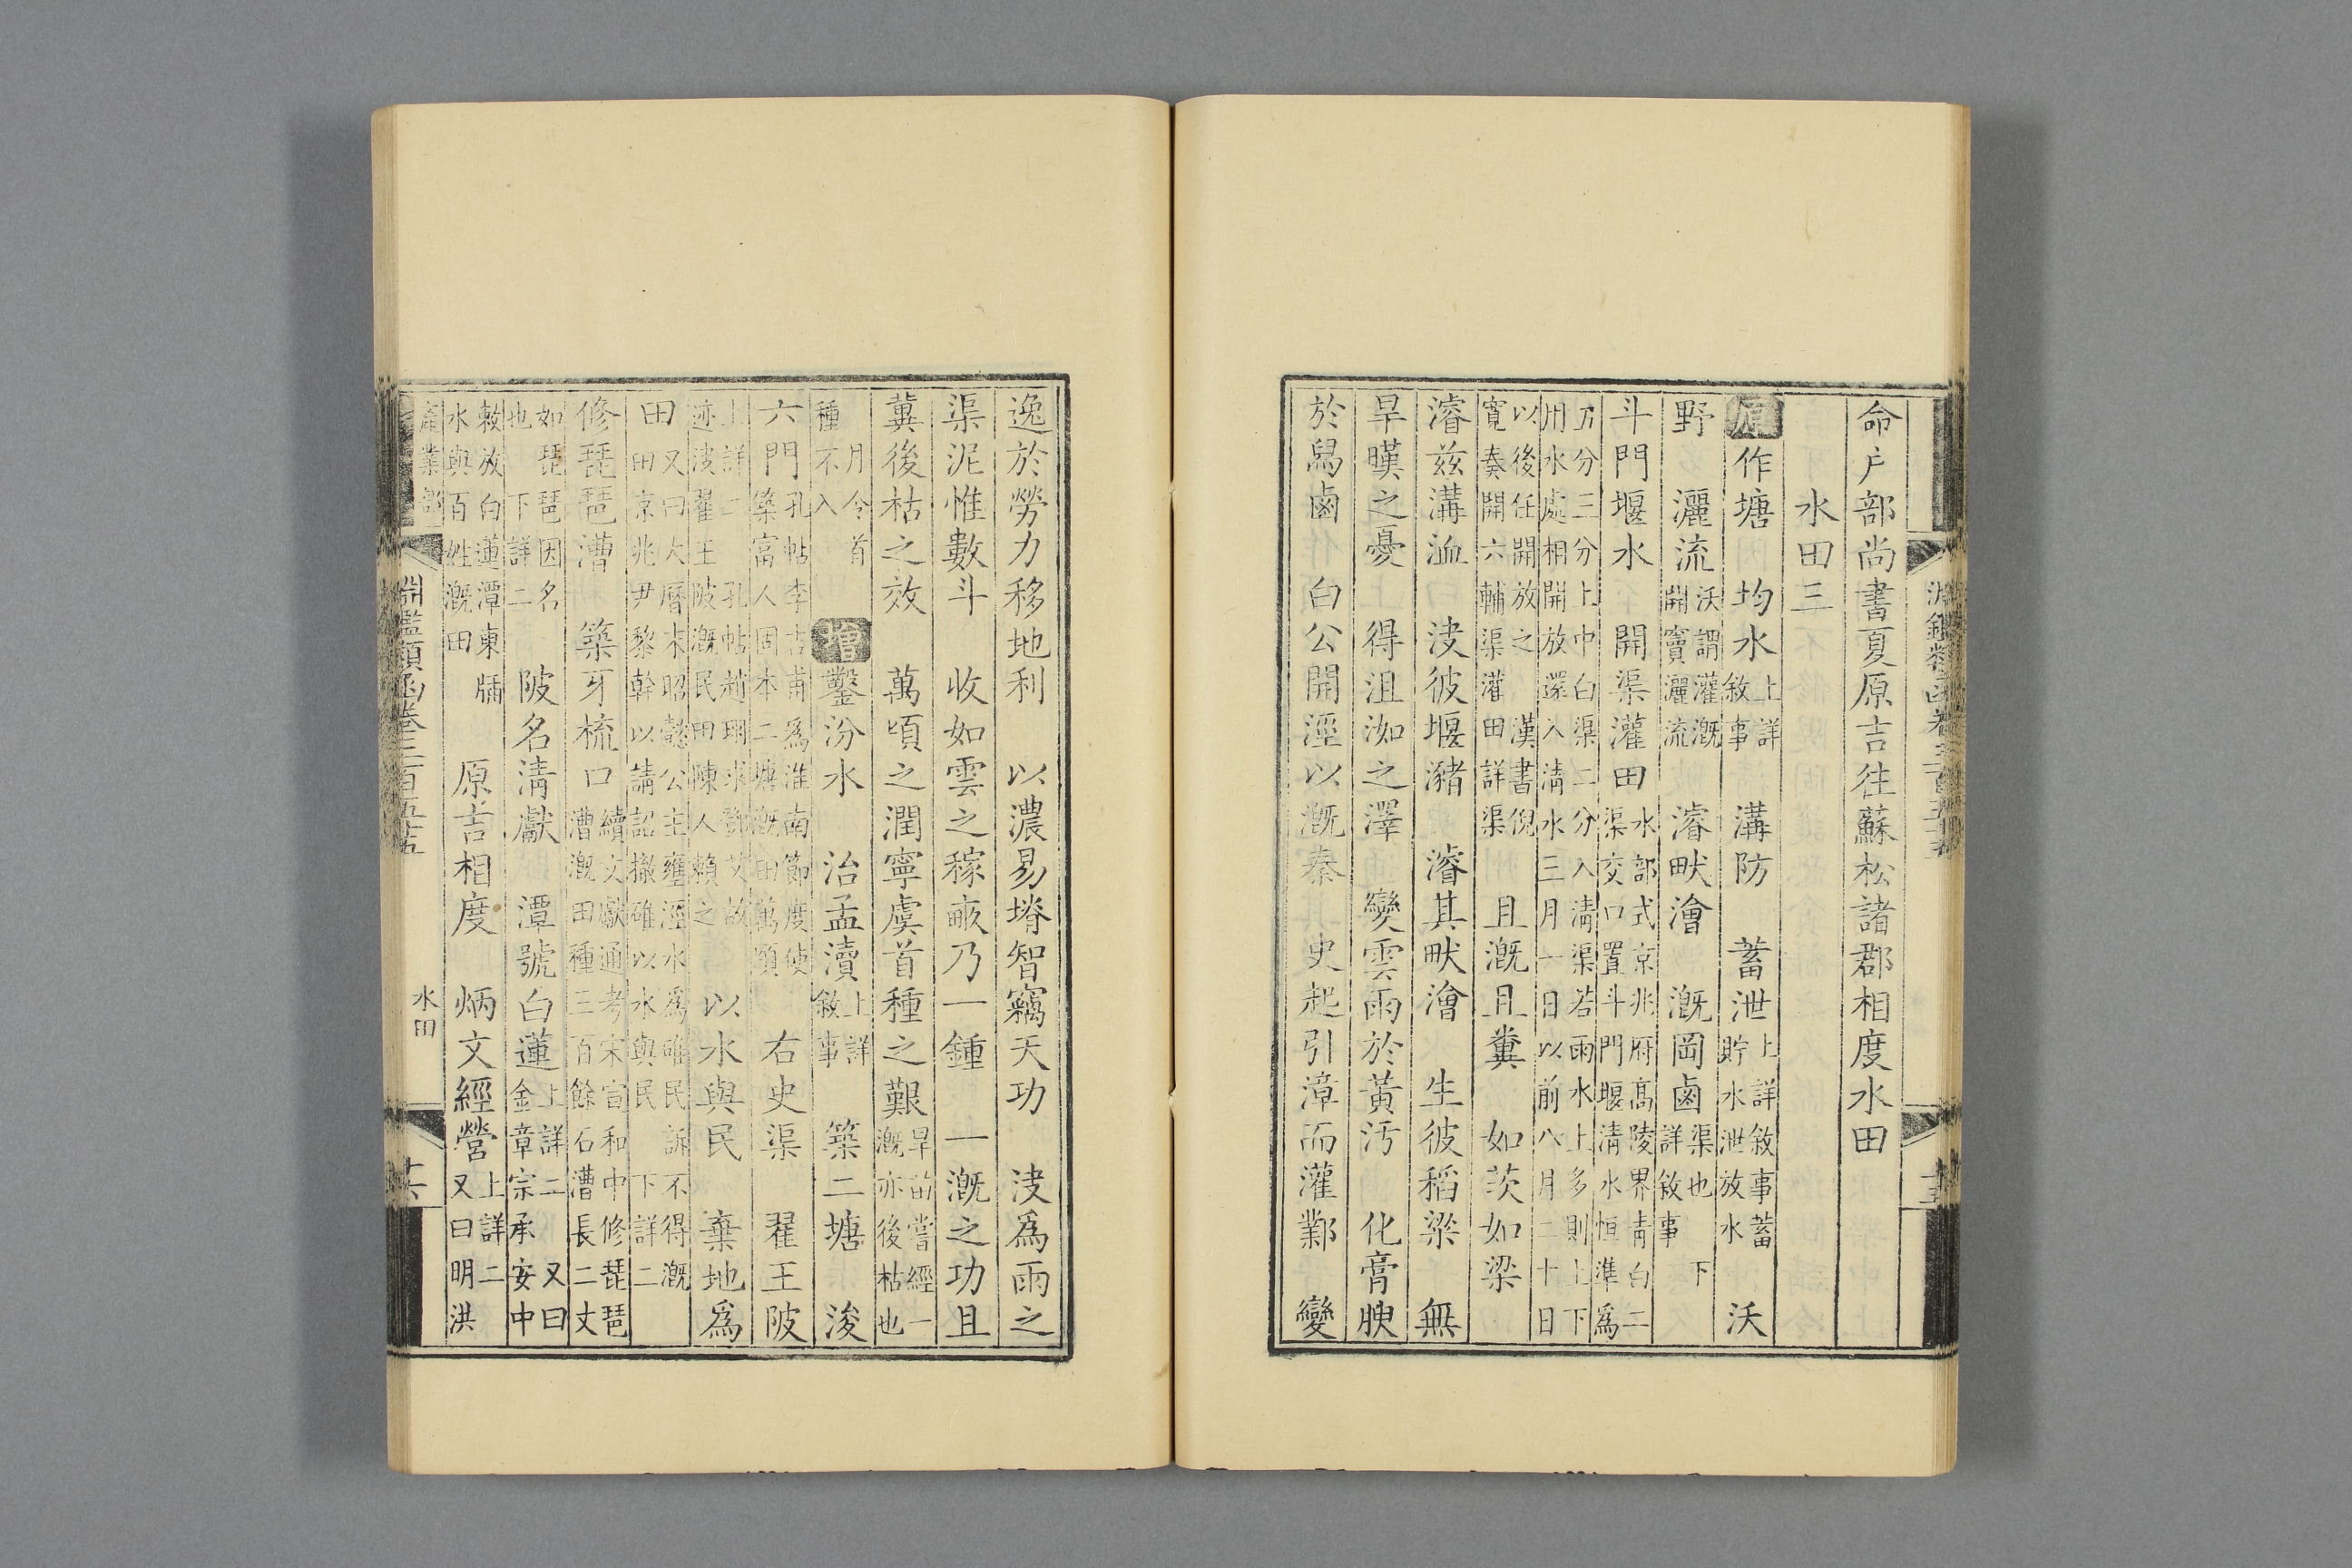 命戶部尚書夏原吉往蘇松諸郡相度水田
水田三
原 作塘 均水 上詳敘事 溝防 蓄泄 上詳敘事蓄貯水泄放水 沃
野 灑流 沃謂灌漑開竇灑流 濬畎澮 漑岡鹵 渠也下詳敘事
斗門堰水 開渠灌田 水部式京兆府高陵界淸白二渠交口置斗門堰淸水恒準爲
五分三分上中白渠二分入淸渠若雨水上多則上下用水處相開放還入淸水三月一日以前八月二十日
以後任開放之 漢書倪寬奏開六輔渠灌田詳渠 且漑且糞 如茨如梁
濬兹溝洫 浚彼堰瀦 濬其畎澮 生彼稻粱 無
旱暵之憂 得沮洳之澤 變雲雨於黃汚 化膏腴
於舄鹵 白公開涇以漑秦 史起引漳而灌鄴 變
淵鑑類函卷三百五十五
十五
逸於勞力移地利 以濃易塉智竊天功 浚爲雨之
渠泥惟數斗 收如雲之稼畞乃一鍾 一漑之功且
冀後枯之效 萬頃之潤寧虞首種之艱 旱苗嘗經一漑亦後枯也
月令首種不入 增 鑿汾水 治孟瀆 上詳敘事 築二塘 浚
六門 孔帖李吉甫爲淮南節度使築富人固本二塘漑田萬頃 右史渠 翟王陂
上詳二 孔帖趙珝求鄧艾故迹浚翟王陂漑民田陳人賴之 以水與民 棄地爲
田 又曰大曆末昭懿公主壅涇水爲磑民訴不得漑田京兆尹黎幹以請詔撤磑以水與民 下詳二
修琵琶漕 築牙梳口 續文獻通考宋宣和中修琵琶漕漑田種三百餘石漕長二丈
如琵琶因名也 下詳二 陂名淸獻 潭號白蓮 上詳二 又曰金章宗承安中
敕放白蓮潭東牐水與百姓漑田 原吉相度 炳文經營 上詳二 又曰明洪
產業部
淵鑑類函卷三百五十五
水田
十六